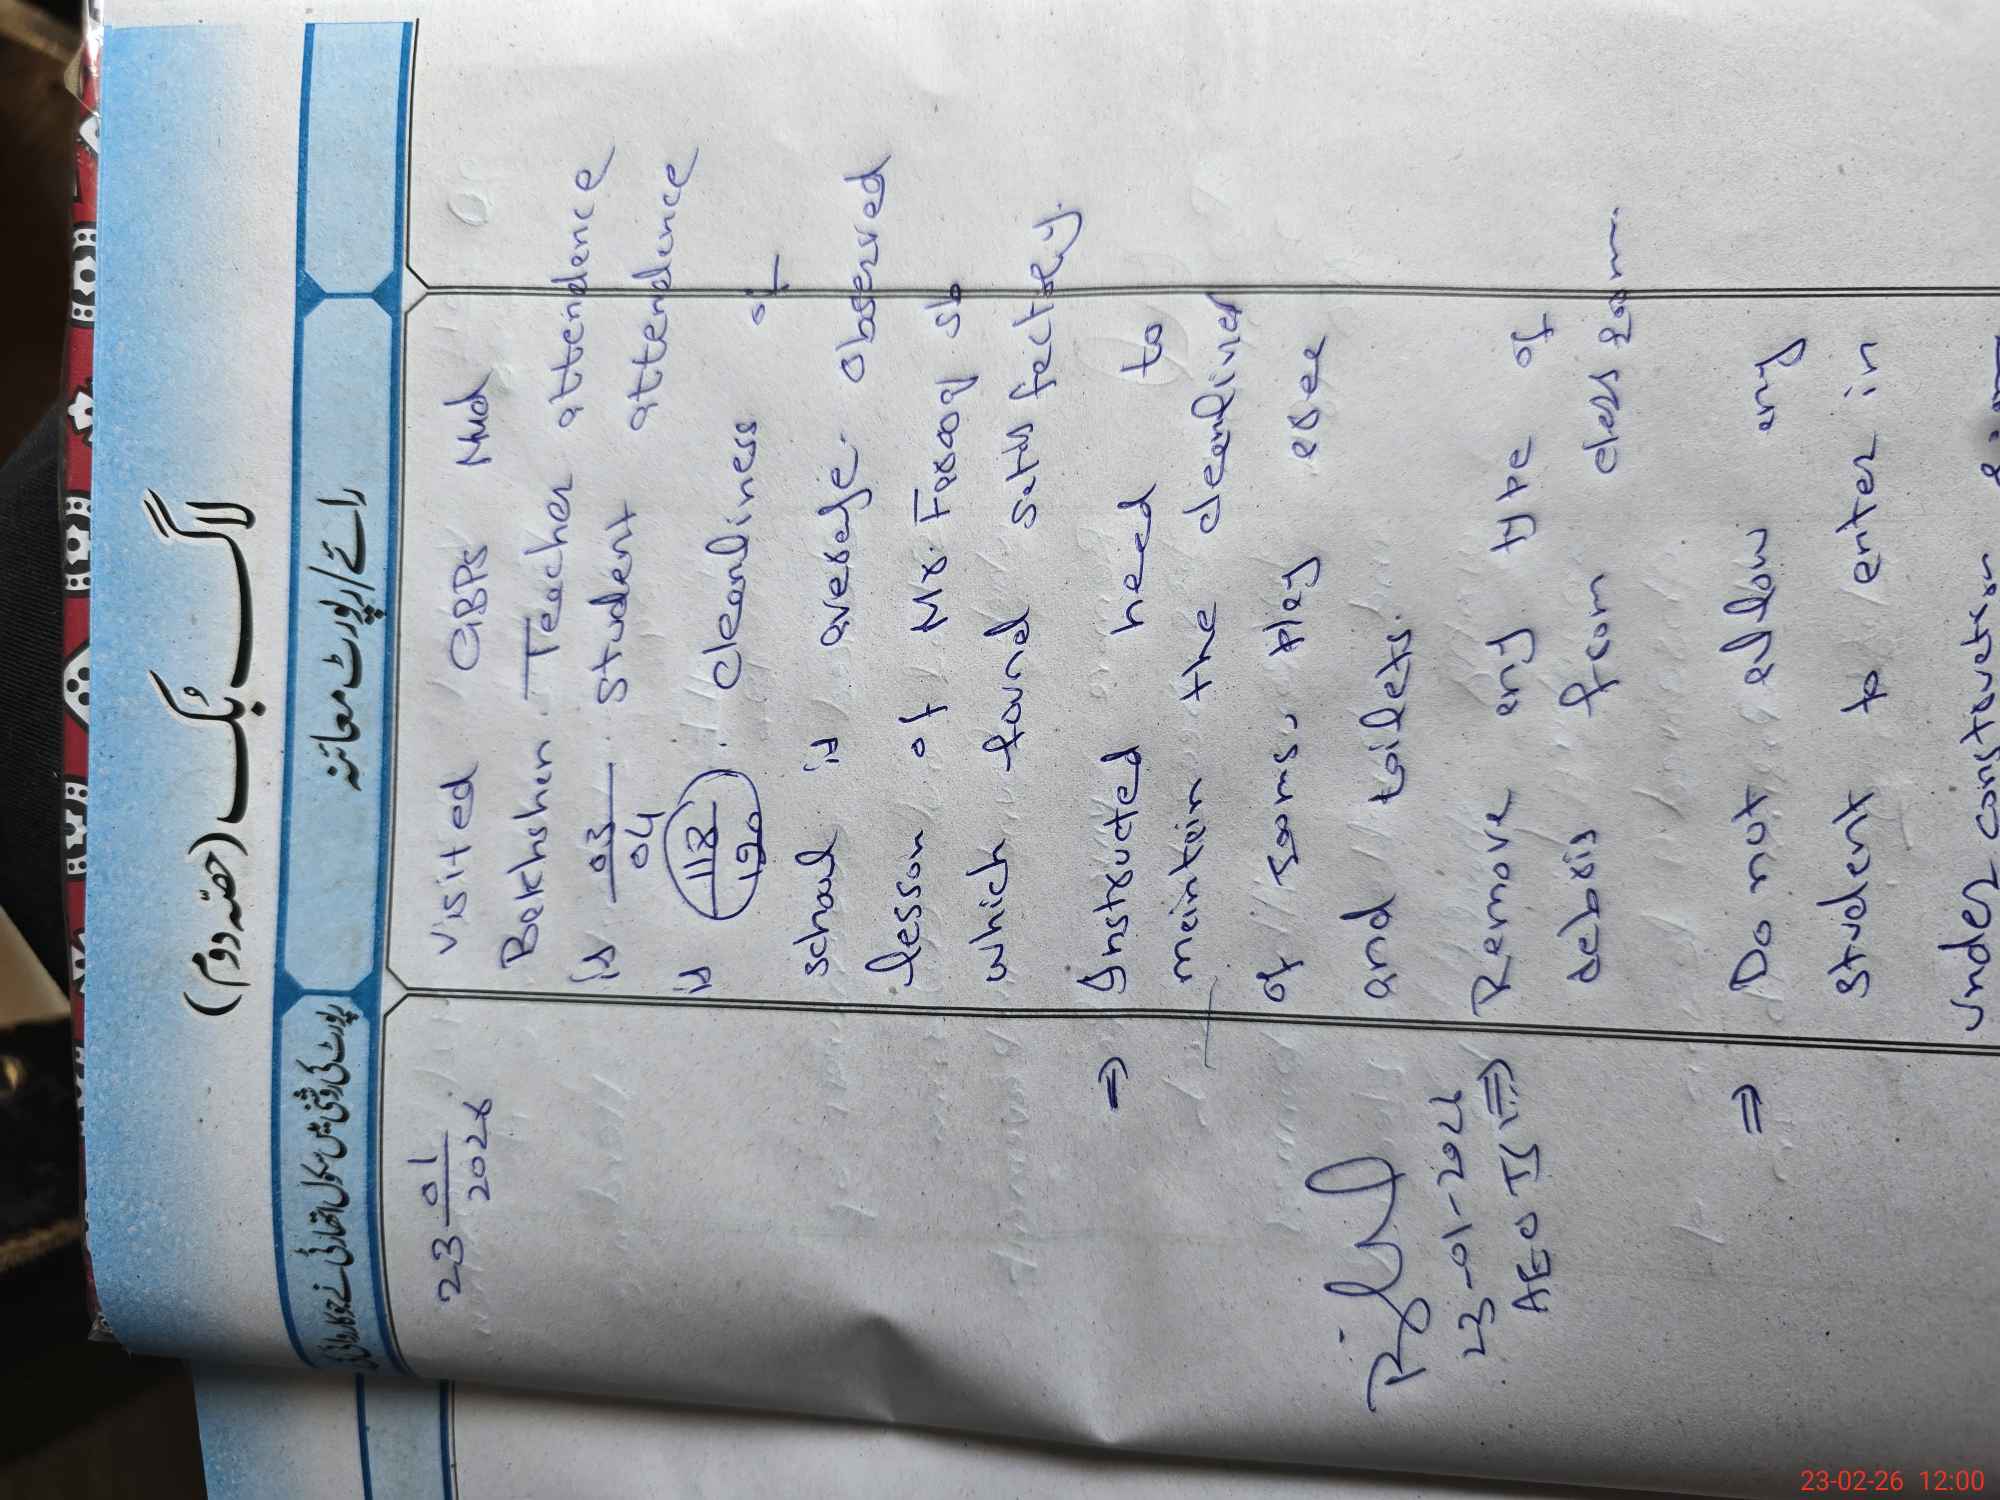 لاگ بُک (حصّہ دوم)
رائے/رپورٹ معائنہ
رپورٹ کی روشنی میں سکول اتھارٹی نے جو کاروائی کی
23 01
2026
Visited GBPS Nud
Bakhshan. Teacher attendence
is 03/04 student attendence
is 118/120. cleanliness of
school is average. observed
lesson of Mr. Farooq sb
which found satisfactory.
⇒ Instructed head to
meintein the cleanlines
of rooms, play area
and toilets.
⇒ Remove any type of
debris from class room.
⇒ Do not allow any
student to enter in
under construction
23-01-2026
AEO
23-02-26 12:00